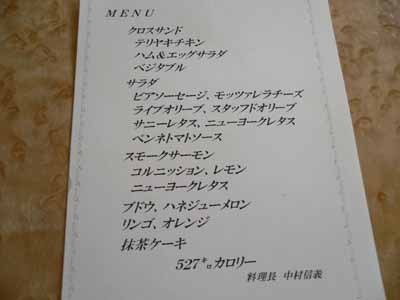 MENU
クロスサンド
テリヤキチキン
ハム&エッグサラダ
ベジタブル
サラダ
ビアソーセージ、モッツァレラチーズ
ライプオリーブ、スタッフドオリーブ
サニーレタス、ニューヨークレタス
ペンネトマトソース
スモークサーモン
コルニッション、レモン
ニューヨークレタス
ブドウ、ハネジューメロン
リンゴ、オレンジ
抹茶ケーキ
527㌔カロリー
料理長 中村信義